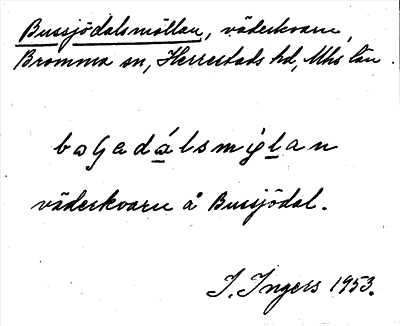 Bussjödalsmöllan, väderkvarn,
Bromma sn, Herrestads hd, Mhs län.
väderkvarn å Bussjödal.
I. Ingers 1953.